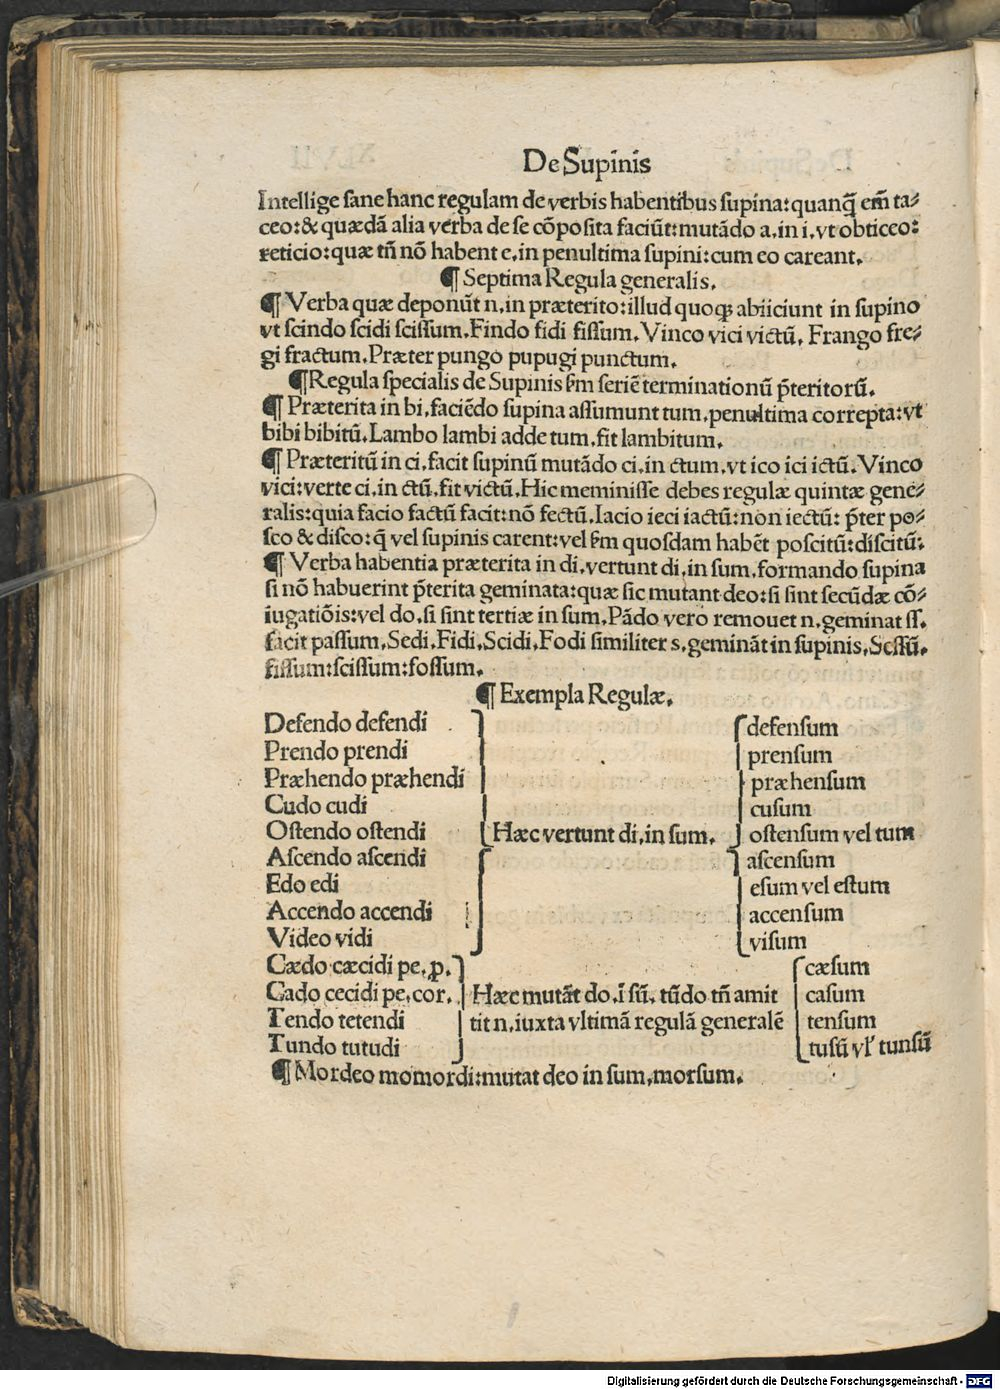 De Supinis
Intellige ſane hanc regulam de verbis habentibus ſupina: quanq̄ em̄ ta⸗
ceo: & quædā alia verba de ſe cōpoſita faciūt: mutādo a, in i, vt obticeo:
reticio: quæ tn̄ nō habent e, in penultima ſupini: cum eo careant.
¶ Septima Regula generalis.
¶ Verba quæ deponūt n, in præterito: illud quoq̨ abiiciunt in ſupino
vt ſcindo ſcidi ſciſſum. Findo fidi fiſſum. Vinco vici victū. Frango fre⸗
gi fractum. Præter pungo pupugi punctum.
¶ Regula ſpecialis de Supinis ẜm ſeriē terminationū p̄teritorū.
¶ Præterita in bi, faciēdo ſupina aſſumunt tum, penultima correpta: vt
bibi bibitū. Lambo lambi adde tum, fit lambitum.
¶ Præteritū in ci, facit ſupinū mutādo ci, in ctum, vt ico ici ictū. Vinco
vici: verte ci, in ctū, fit victū. Hic meminiſſe debes regulæ quintæ gene⸗
ralis: quia facio factū facit: nō fectū. Iacio ieci iactū: non iectū: p̄ter po⸗
ſco & diſco: q̄ vel ſupinis carent: vel ẜm quoſdam habēt poſcitū: diſcitū:
¶ Verba habentia præterita in di, vertunt di, in ſum, formando ſupina
ſi nō habuerint p̄terita geminata: quæ ſic mutant deo: ſi ſint ſecūdæ cō⸗
iugatiōis: vel do, ſi ſint tertiæ in ſum. Pādo vero remouet n, geminat ſſ.
facit paſſum. Sedi, Fidi, Scidi, Fodi ſimiliter s, gemināt in ſupinis, Seſſū,
fiſſum: ſciſſum: foſſum.
¶ Exempla Regulæ.
Defendo defendi defenſum
Prendo prendi prenſum
Præhendo præhendi præhenſum
Cudo cudi cuſum
Oſtendo oſtendi Hæc vertunt di, in ſum. oſtenſum vel tum
Aſcendo aſcendi aſcenſum
Edo edi eſum vel eſtum
Accendo accendi accenſum
Video vidi viſum
Cædo cæcidi pe. ꝓ. cæſum
Cado cecidi pe. cor. Hæc mutāt do, ī ſū, tūdo tn̄ amit caſum
Tendo tetendi tit n, iuxta vltimā regulā generalē tenſum
Tundo tutudi tuſū vl' tunſū
¶ Mordeo momordi: mutat deo in ſum, morſum.
Digitalisierung gefördert durch die Deutsche Forschungsgemeinschaft - DFG